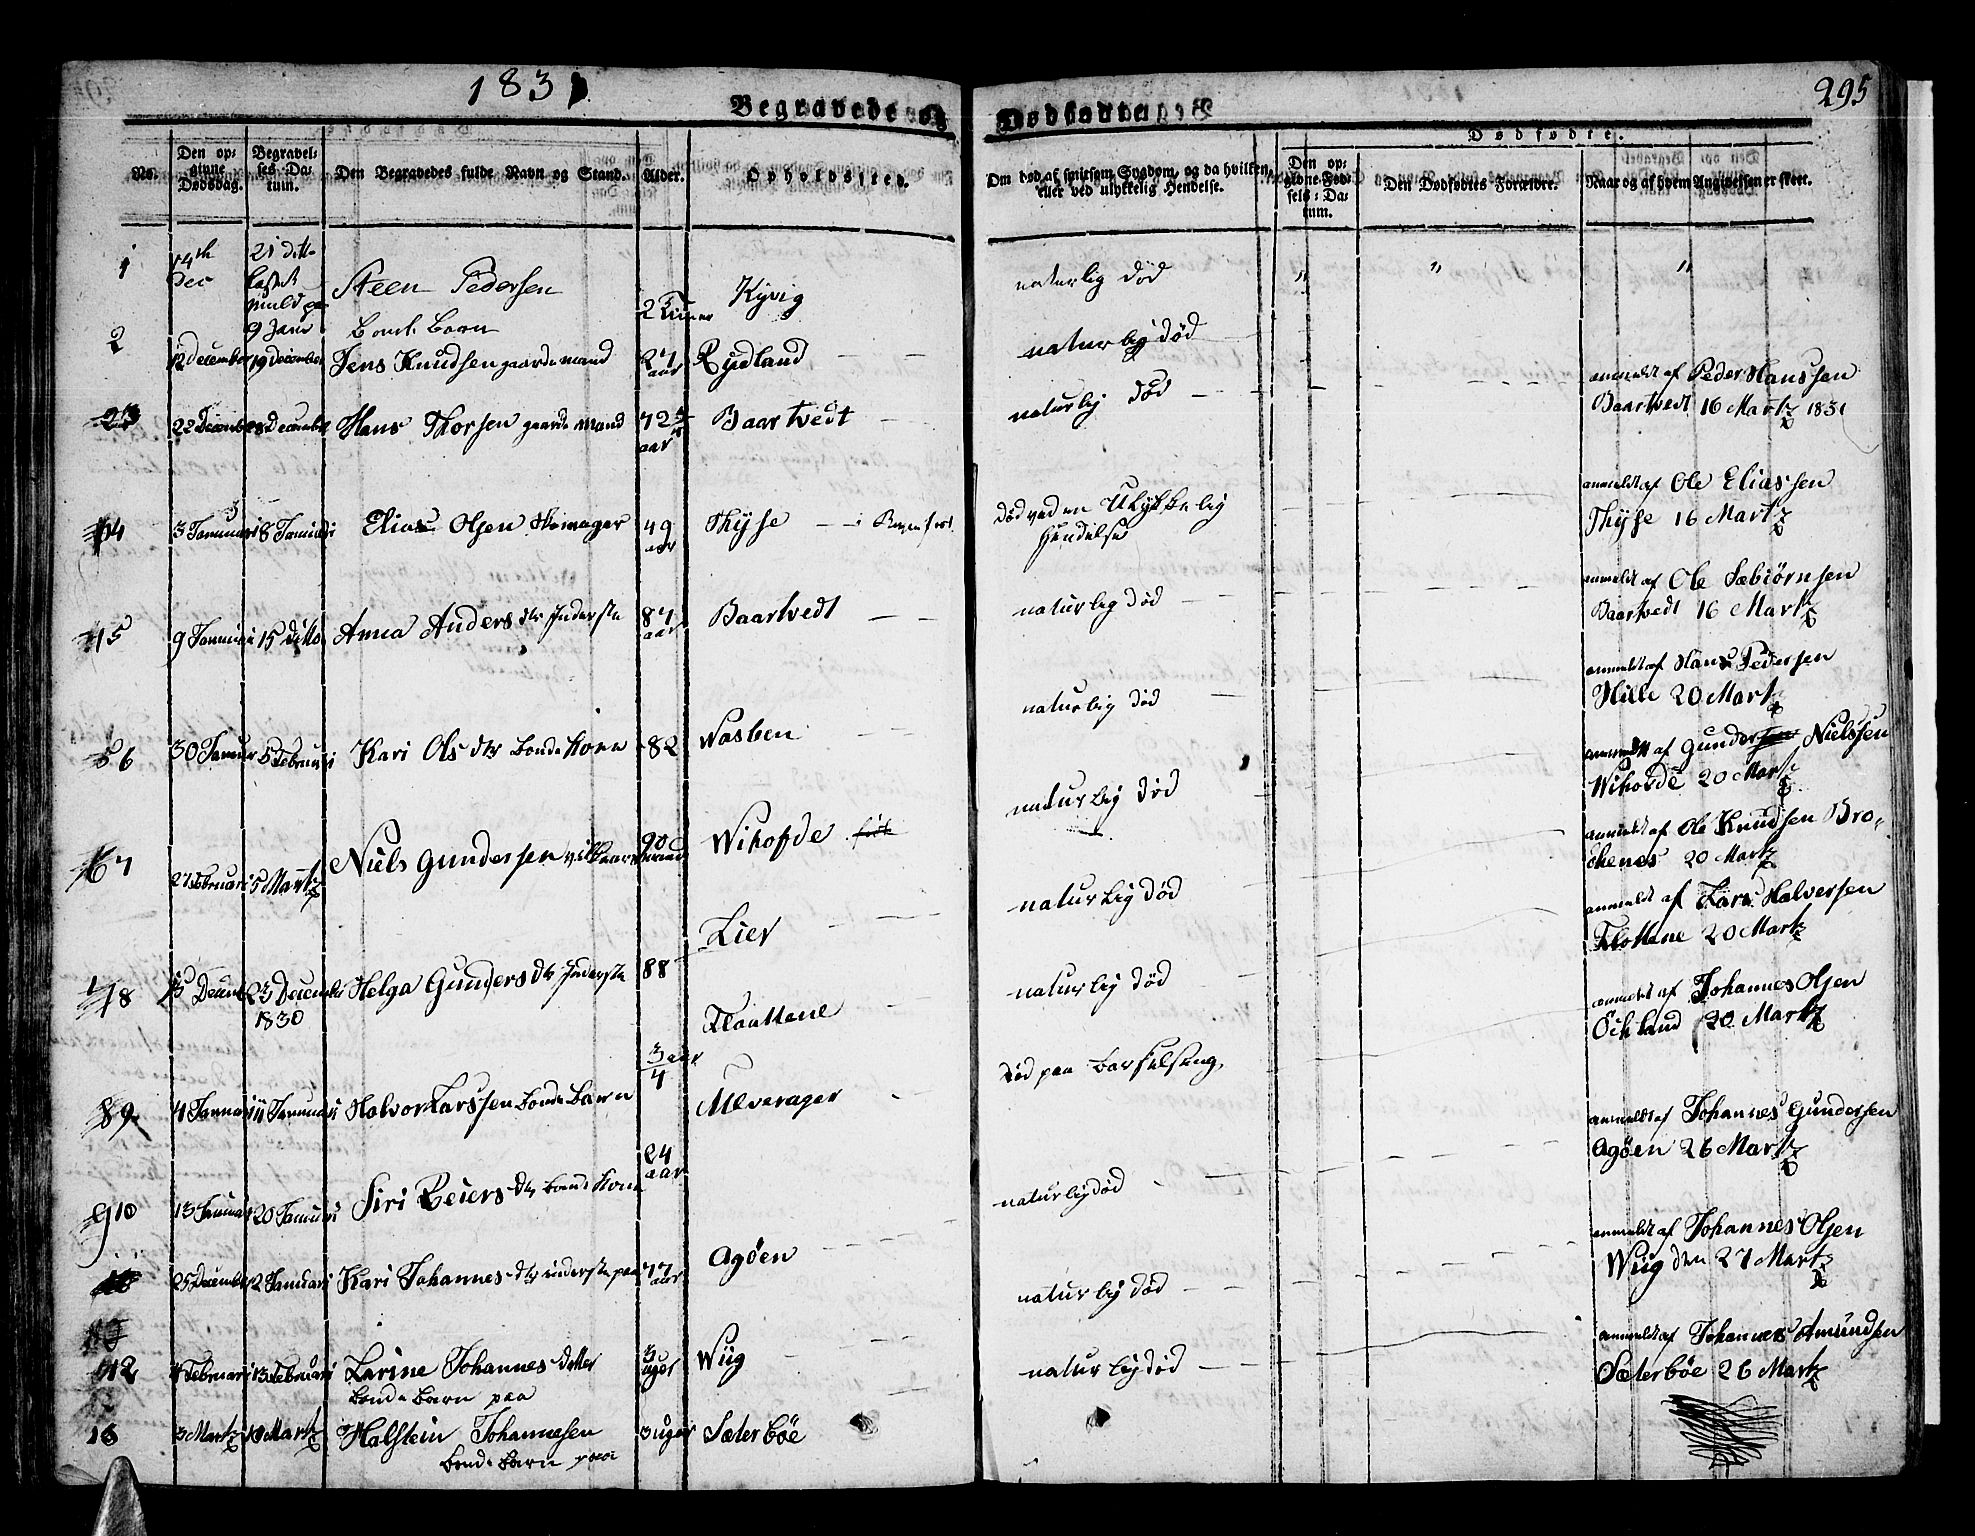 1831
295
Begravede og Dødfødte
Dødfødte.
No.
Den opgivne Dødsdag.
Begravelses Datum.
Den Begravedes fulde Navn og Stand.
Alder.
Opholdssted.
Om død af smitsom Sygdom, og da hvilken, eller ved ulykkelig Hendelse.
Den opgivne Fødsels-Datum.
Den Dødfødtes Forældre.
Naar og af hvem Angivelsen er skeet.
1 14th Dec 21 ditto 9 Janr Steen Pedersen Bonde Barn 2 Timer Kyvig naturlig død " " "
2 12 December 19 December Jens Knudsen gaardemand 27 aar Rydland naturlig død
3 22 December 28 December Hans Thorsen gaarde mand 72 aar Baartvedt naturlig død anmeldt af Peder Hanssen
Baartvedt 16 Martz 1831
4 3 Januari 8 Januari Elias Olsen Skomager 49 aar Thyse død ved en Ulykkelig Hendelse anmeldt af Ole Eliassen
Thyse 16 Martz
5 9 Januari 15 ditto Anna Anders dtr Inderste 87 aar Baartvedt naturlig død anmeldt af Ole Sæbiørnsen
Baartvedt 16 Martz
anmeldt af Hans Pedersen
Hille 20 Martz
6 30 Januar 5 Februari Kari Ols dtr Bonde Kone 82 Wasben naturlig død
anmeldt af Gunder Nielssen
Wihofde 20 Martz
7 27 Februari 5 Martz Niels Gundersen 90 Wihofde naturlig død
anmeldt af Ole Knudsen Bro-
chenes 20 Martz
Lier naturlig død
anmeldt af Lars Halversen
Flottene 20 Martz
8 15 Decemb 23 December 1830 Helga Gunders dtr Inderste 88
Flaattene naturlig død
anmeldt af Johannes Olsen
Eikland 20 Martz
9 4 Januari 11 Januari Halvor Larssen Bonde Barn 3/4 aar Ulverager død paa Barselseng
anmeldt af Johannes Gundersen
Agøen 26 Martz
10 13 Januari 20 Januari Siri Reiers dtr bonde Kone 24 aar
naturlig død
25 December 2 Januari Kari Johannes dtr inderste paa 77 aar Agøen naturlig død
anmeldt af Johannes Olsen
Wiig den 27 Martz
12 4 Februari 13 Februari Larine Johannes datter
bonde barn paa 3 uger Wiig naturlig død
anmeldt af Johannes Amundsen
Sæterbøe 26 Martz
13 3 Martz 10 Martz Halstein Johannesen
bonde barn paa 3 uger Sæterbøe